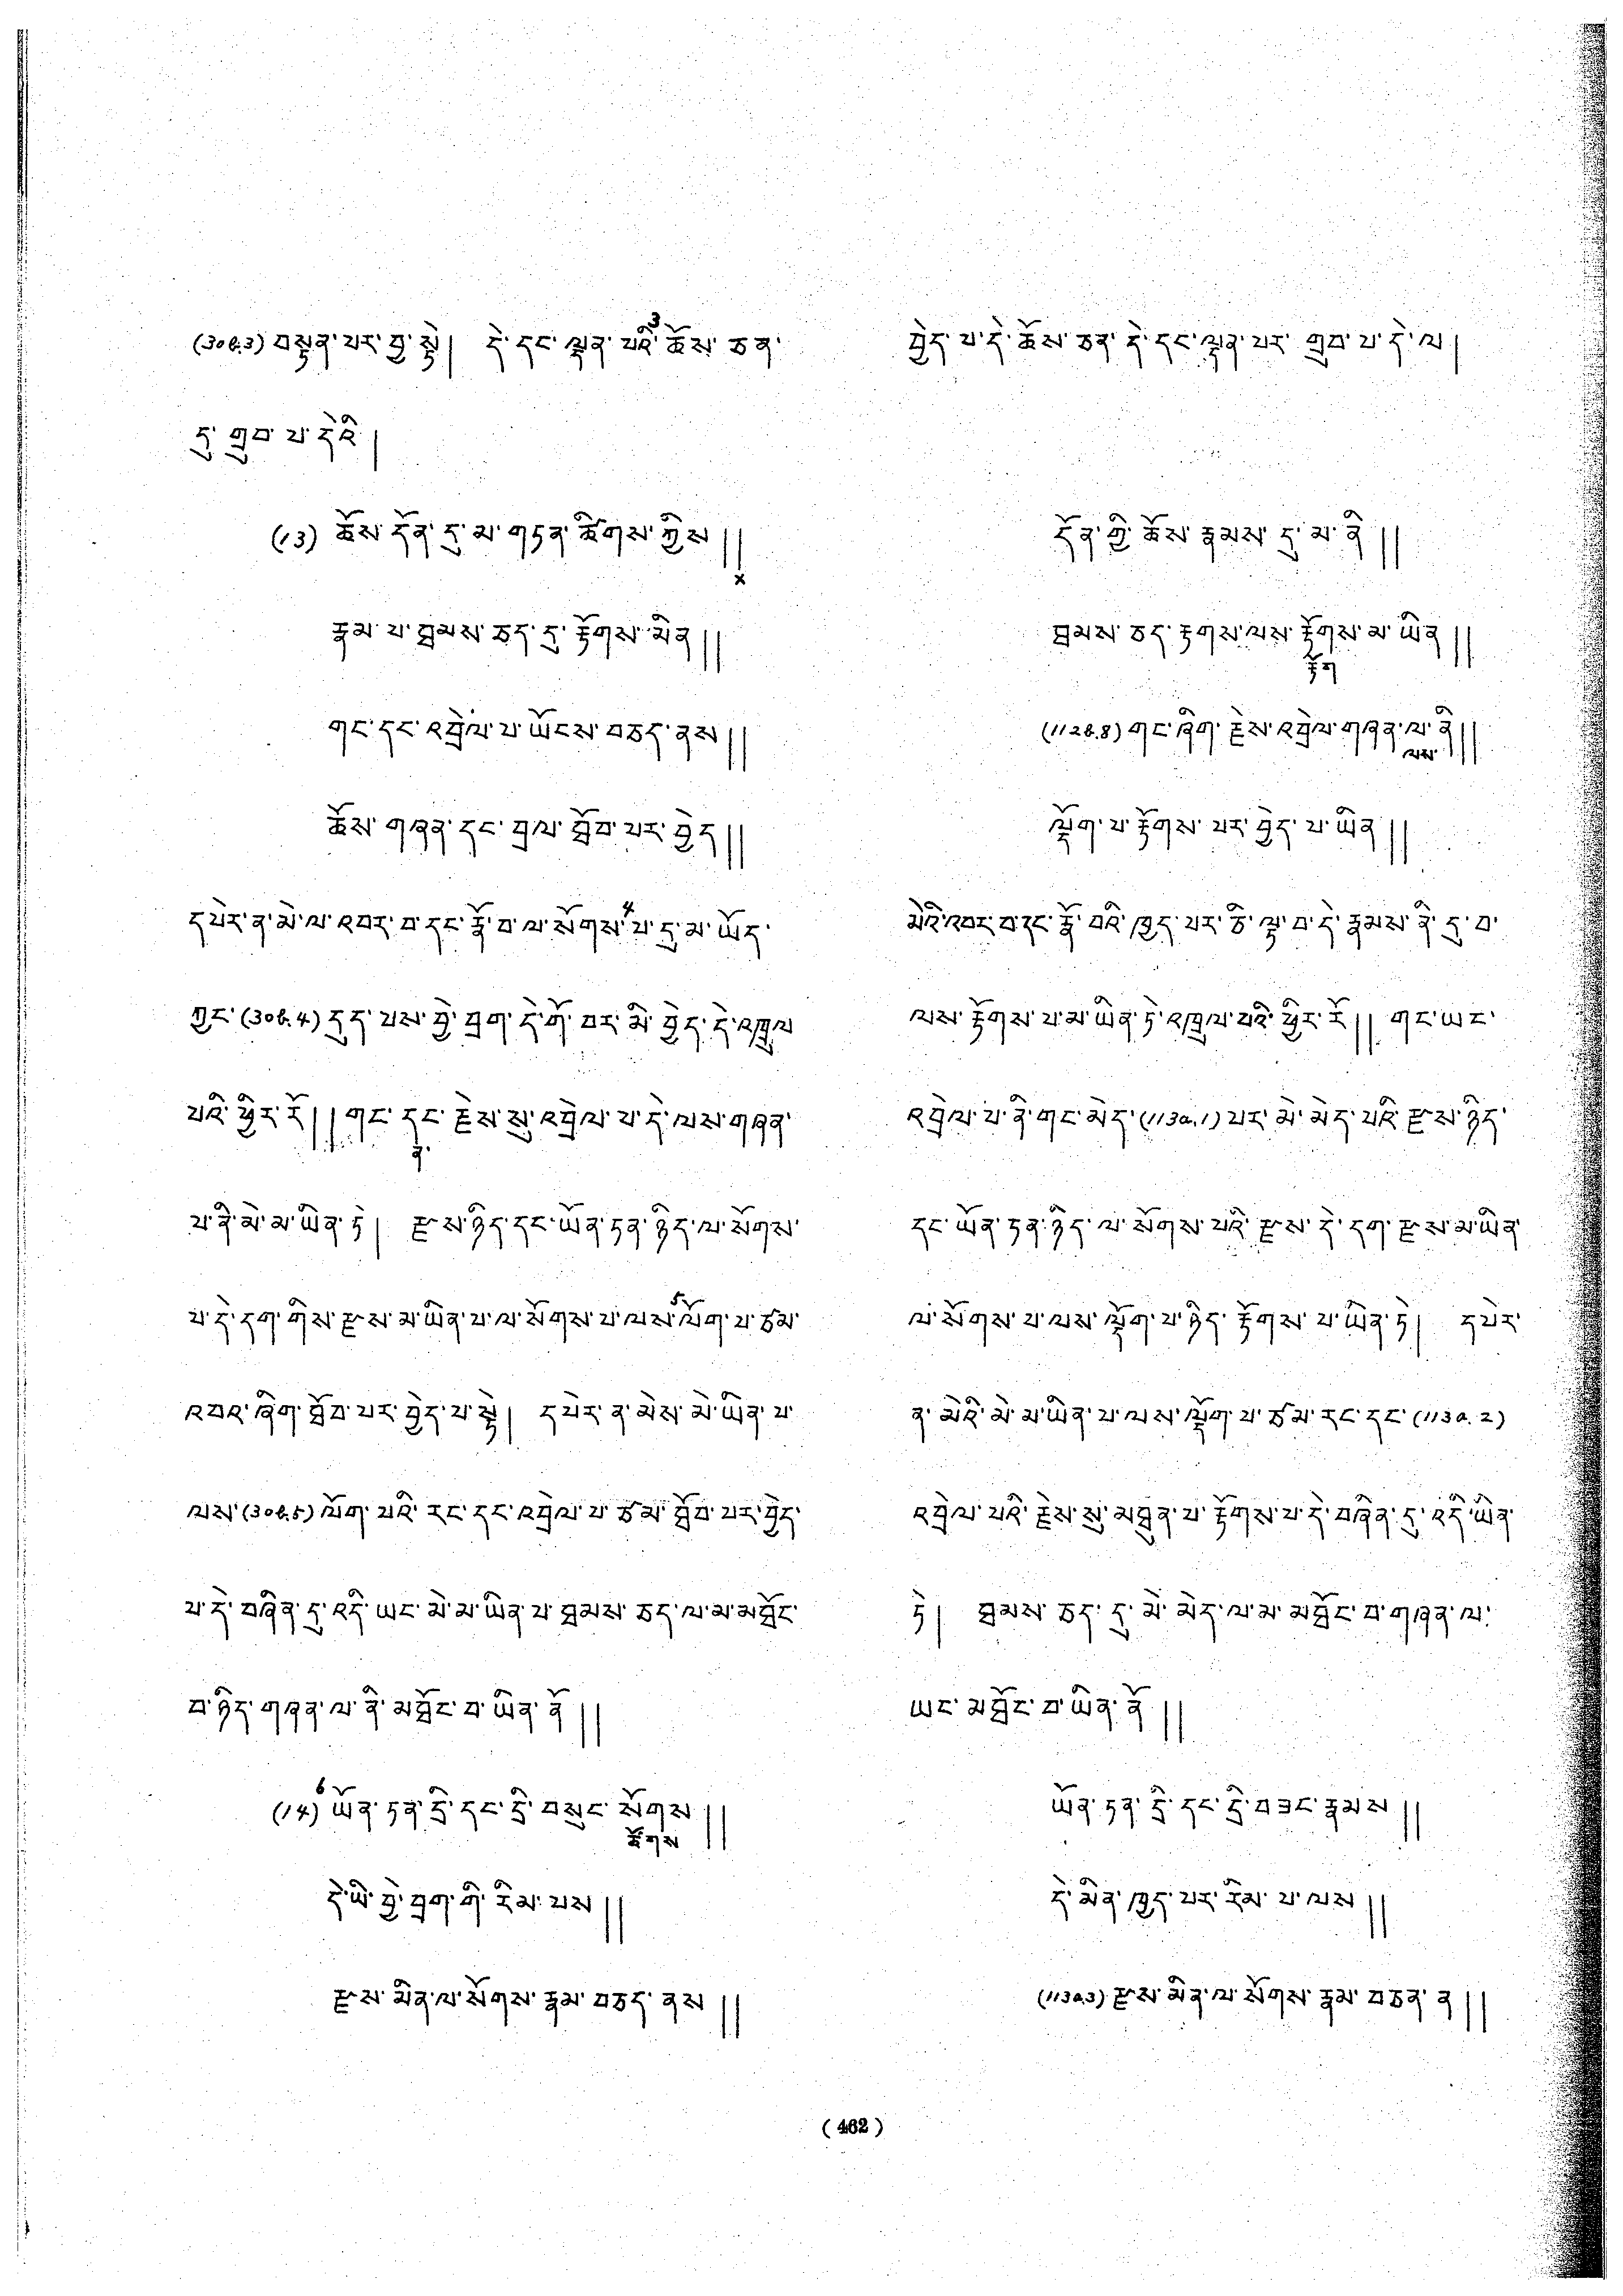 (30b.3) བསྟན་པར་བྱ་སྟེ། དེ་དང་ལྡན་པའི་3ཆོས་ཅན་
དུ་གྲུབ་པ་དེའི།
(13) ཆོས་དོན་དུ་མ་གཏན་ཚིགས་ཀྱིས༎
×
རྣམ་པ་ཐམས་ཅད་དུ་རྟོགས་མིན༎
གང་དང་འབྲེལ་པ་ཡོངས་བཅད་ནས༎
ཆོས་གཞན་དང་བྲལ་ཐོབ་པར་བྱེད༎
དཔེར་ན་མེ་ལ་འབར་བ་དང་རྣོ་བ་ལ་སོགས་4པ་དུ་མ་ཡོད་
ཀྱང་(30b.4)དུད་པས་བྱེ་བྲག་དེ་གོ་བར་མི་བྱེད་དེ་འཁྲུལ
པའི་ཕྱིར་རོ༎གང་དང་རྗེས་སུ་འབྲེལ་པ་དེ་ལས་གཞན་
ན་
པ་ནི་མེ་མ་ཡིན་ཏེ། རྫས་ཉིད་དང་ཡོན་ཏན་ཉིད་ལ་སོགས་
པ་དེ་དག་གིས་རྫས་མ་ཡིན་པ་ལ་སོགས་པ་ལས་5ལོག་པ་ཙམ་
འབའ་ཞིག་ཐོབ་པར་བྱེད་པ་སྟེ། དཔེར་ན་མེས་མེ་ཡིན་པ་
ལས་(30b.5)ལོག་པའི་རང་དང་འབྲེལ་པ་ཙམ་ཐོབ་པར་བྱེད་
པ་དེ་བཞིན་དུ་འདི་ཡང་མེ་མ་ཡིན་པ་ཐམས་ཅད་ལ་མ་མཐོང་
བ་ཉིད་གཞན་ལ་ནི་མཐོང་བ་ཡིན་ནོ༎
(14)6 ཡོན་ཏན་དྲི་དང་དྲི་བསུང་སོགས༎
ཚོགས
དེ་ཡི་བྱེ་བྲག་གི་རིམ་པས༎
རྫས་མིན་ལ་སོགས་རྣམ་བཅད་ནས༎
བྱེད་པ་དེ་ཆོས་ཅན་དེ་དང་ལྡན་པར་གྲུབ་པ་དེ་ལ།
དོན་གྱི་ཆོས་རྣམས་དུ་མ་ནི༎
ཐམས་ཅད་རྟགས་ལས་རྟོགས་མ་ཡིན༎
རྟོག
(112b.8) གང་ཞིག་རྗེས་འབྲེལ་གཞན་ལ་ནི༎
ལས་
ལྡོག་པ་རྟོགས་པར་བྱེད་པ་ཡིན༎
མེའི་འབར་བ་དང་རྣོ་བའི་ཁྱད་པར་ཅི་ལྟ་བ་དེ་རྣམས་ནི་དུ་བ་
ལས་རྟོགས་པ་མ་ཡིན་ཏེ་འཁྲུལ་བའི་ཕྱིར་རོ༎ གང་ཡང་
འབྲེལ་པ་ནི་གང་མེད་(113a.1)པར་མེ་མེད་པའི་རྫས་ཉིད་
དང་ཡོན་ཏན་ཉིད་ལ་སོགས་པའི་རྫས་དེ་དག་རྫས་མ་ཡིན་
ལ་སོགས་པ་ལས་ལྡོག་པ་ཉིད་རྟོགས་པ་ཡིན་ཏེ། དཔེར་
ན་མེའི་མེ་མ་ཡིན་པ་ལས་ལྡོག་པ་ཙམ་རང་དང་(113a.2)
འབྲེལ་པའི་རྗེས་སུ་མཐུན་པ་རྟོགས་པ་དེ་བཞིན་དུ་འདི་ཡིན་
ཏེ། ཐམས་ཅད་དུ་མེ་མེད་ལ་མ་མཐོང་བ་གཞན་ལ་
ཡང་མཐོང་བ་ཡིན་ནོ༎
ཡོན་ཏན་དྲི་དང་དྲི་བཟང་རྣམས༎
དེ་མིན་ཁྱད་པར་རིམ་པ་ལས༎
(113a3) རྫས་མིན་ལ་སོགས་རྣམ་བཅན་ན༎
(462)